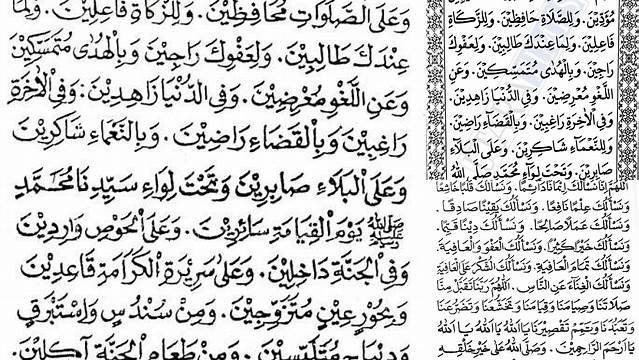 وَعَلَى الصَّلَوَاتِ مُحَافِظِيْنَ. وَلِلزَّكَاةِ فَاعِلِيْنَ. وَلِمَا
عِنْدَكَ طَالِبِيْنَ. وَلِعَفْوِكَ رَاجِيْنَ وَبِالْهُدَى مُتَمَسِّكِيْنَ
وَعَنِ اللَّغْوِ مُعْرِضِيْنَ. وَفِى الدُّنْيَا زَاهِدِيْنَ. وَفِى اْلآخِرَةِ
رَاغِبِيْنَ وَبِالْقَضَاءِ رَاضِيْنَ. وَبِالنَّعْمَاءِ شَاكِرِيْنَ
وَعَلَى الْبَلَاءِ صَابِرِيْنَ وَتَحْتَ لِوَاءِ سَيِّدِنَا مُحَمَّدٍ
ﷺ يَوْمَ الْقِيَامَةِ سَائِرِيْنَ. وَعَلَى الْحَوْضِ وَارِدِيْنَ
وَفِى الْجَنَّةِ دَاخِلِيْنَ. وَعَلَى سَرِيْرَةِ الْكَرَامَةِ قَاعِدِيْنَ
وَبِحُوْرٍ عِيْنٍ مُتَزَوِّجِيْنَ. وَمِنْ سُنْدُسٍ وَاِسْتَبْرَقٍ
وَدِيْبَاجٍ مُتَلَبِّسِيْنَ. وَمِنْ طَعَامِ الْجَنَّةِ آكِلِيْنَ.
مُؤَدِّيْنَ. وَلِلصَّلَاةِ حَافِظِيْنَ. وَلِلزَّكَاةِ
فَاعِلِيْنَ. وَلِمَا عِنْدَكَ طَالِبِيْنَ. وَلِعَفْوِكَ
رَاجِيْنَ. وَبِالْهُدَى مُتَمَسِّكِيْنَ. وَعَنِ
اللَّغْوِ مُعْرِضِيْنَ. وَفِى الدُّنْيَا زَاهِدِيْنَ.
وَفِى اْلآخِرَةِ رَاغِبِيْنَ. وَبِالْقَضَاءِ رَاضِيْنَ.
وَلِلنَّعْمَاءِ شَاكِرِيْنَ. وَعَلَى الْبَلَاءِ
صَابِرِيْنَ. وَتَحْتَ لِوَاءِ مُحَمَّدٍ صَلَّى اللهُ
اَللّٰهُمَّ اِنَّا نَسْأَلُكَ اِيْمَانًا دَائِمًا. وَنَسْأَلُكَ قَلْبًا خَاشِعًا
وَنَسْأَلُكَ عِلْمًا نَافِعًا. وَنَسْأَلُكَ يَقِيْنًا صَادِقًا.
وَنَسْأَلُكَ عَمَلًا صَالِحًا. وَنَسْأَلُكَ دِيْنًا قَيِّمًا.
وَنَسْأَلُكَ خَيْرًا كَثِيْرًا. وَنَسْأَلُكَ الْعَفْوَ وَالْعَافِيَةَ.
وَنَسْأَلُكَ تَمَامَ الْعَافِيَةِ. وَنَسْأَلُكَ الشُّكْرَ عَلَى الْعَافِيَةِ
وَنَسْأَلُكَ الْغِنَاءَ عَنِ النَّاسِ. اَللّٰهُمَّ رَبَّنَا تَقَبَّلْ مِنَّا
صَلَاتَنَا وَصِيَامَنَا وَقِيَامَنَا وَتَخَشُّعَنَا وَتَضَرُّعَنَا
وَتَعَبُّدَنَا وَتَمِّمْ تَقْصِيْرَنَا يَااَللهُ يَااَللهُ يَااَللهُ
يَااَرْحَمَ الرَّاحِمِيْنَ. وَصَلَّى اللهُ عَلَى خَيْرِ خَلْقِهِ